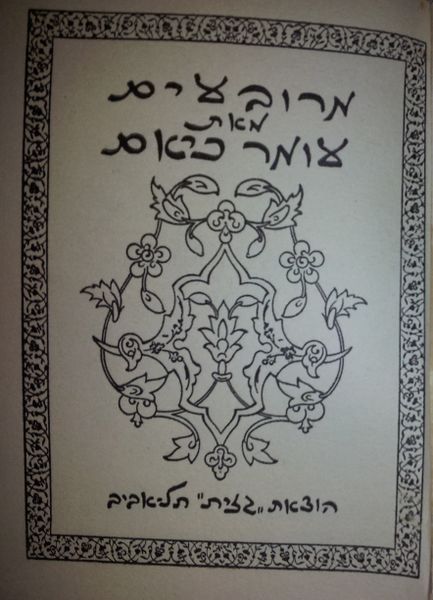 מרובעים
מאת
עומר כיאם
הוצאת „גזית" תל־אביב